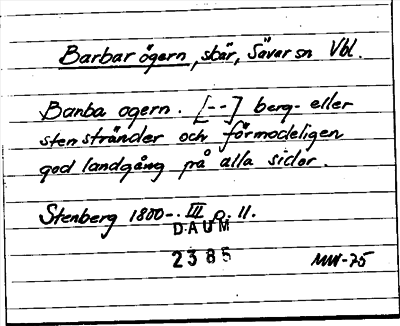 Barbar ögern, skär, Sävar sn Vbl.
Banba ogern. [--] berg- eller
sten stränder och förmodeligen
god landgång på alla sidor.
Stenberg 1800-. III p. 11.
DAUM
2385
MW-75